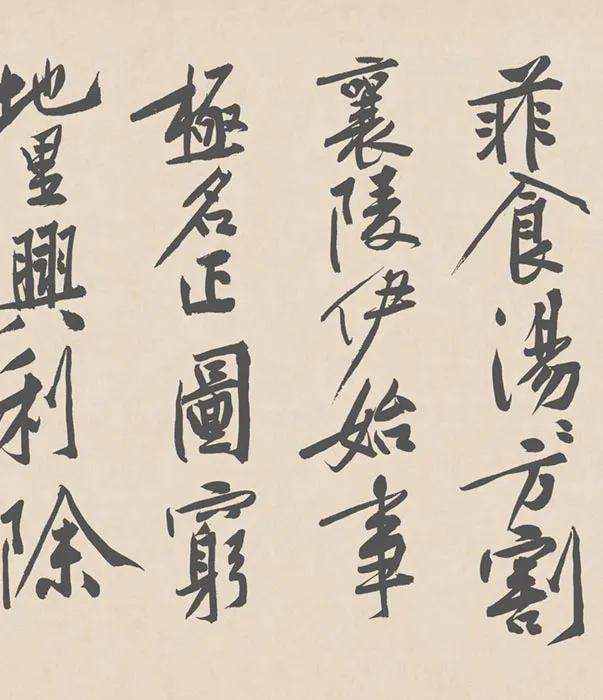 菲食湯〻方割
襄陵伊始事
極名正圖窮
地里興利除